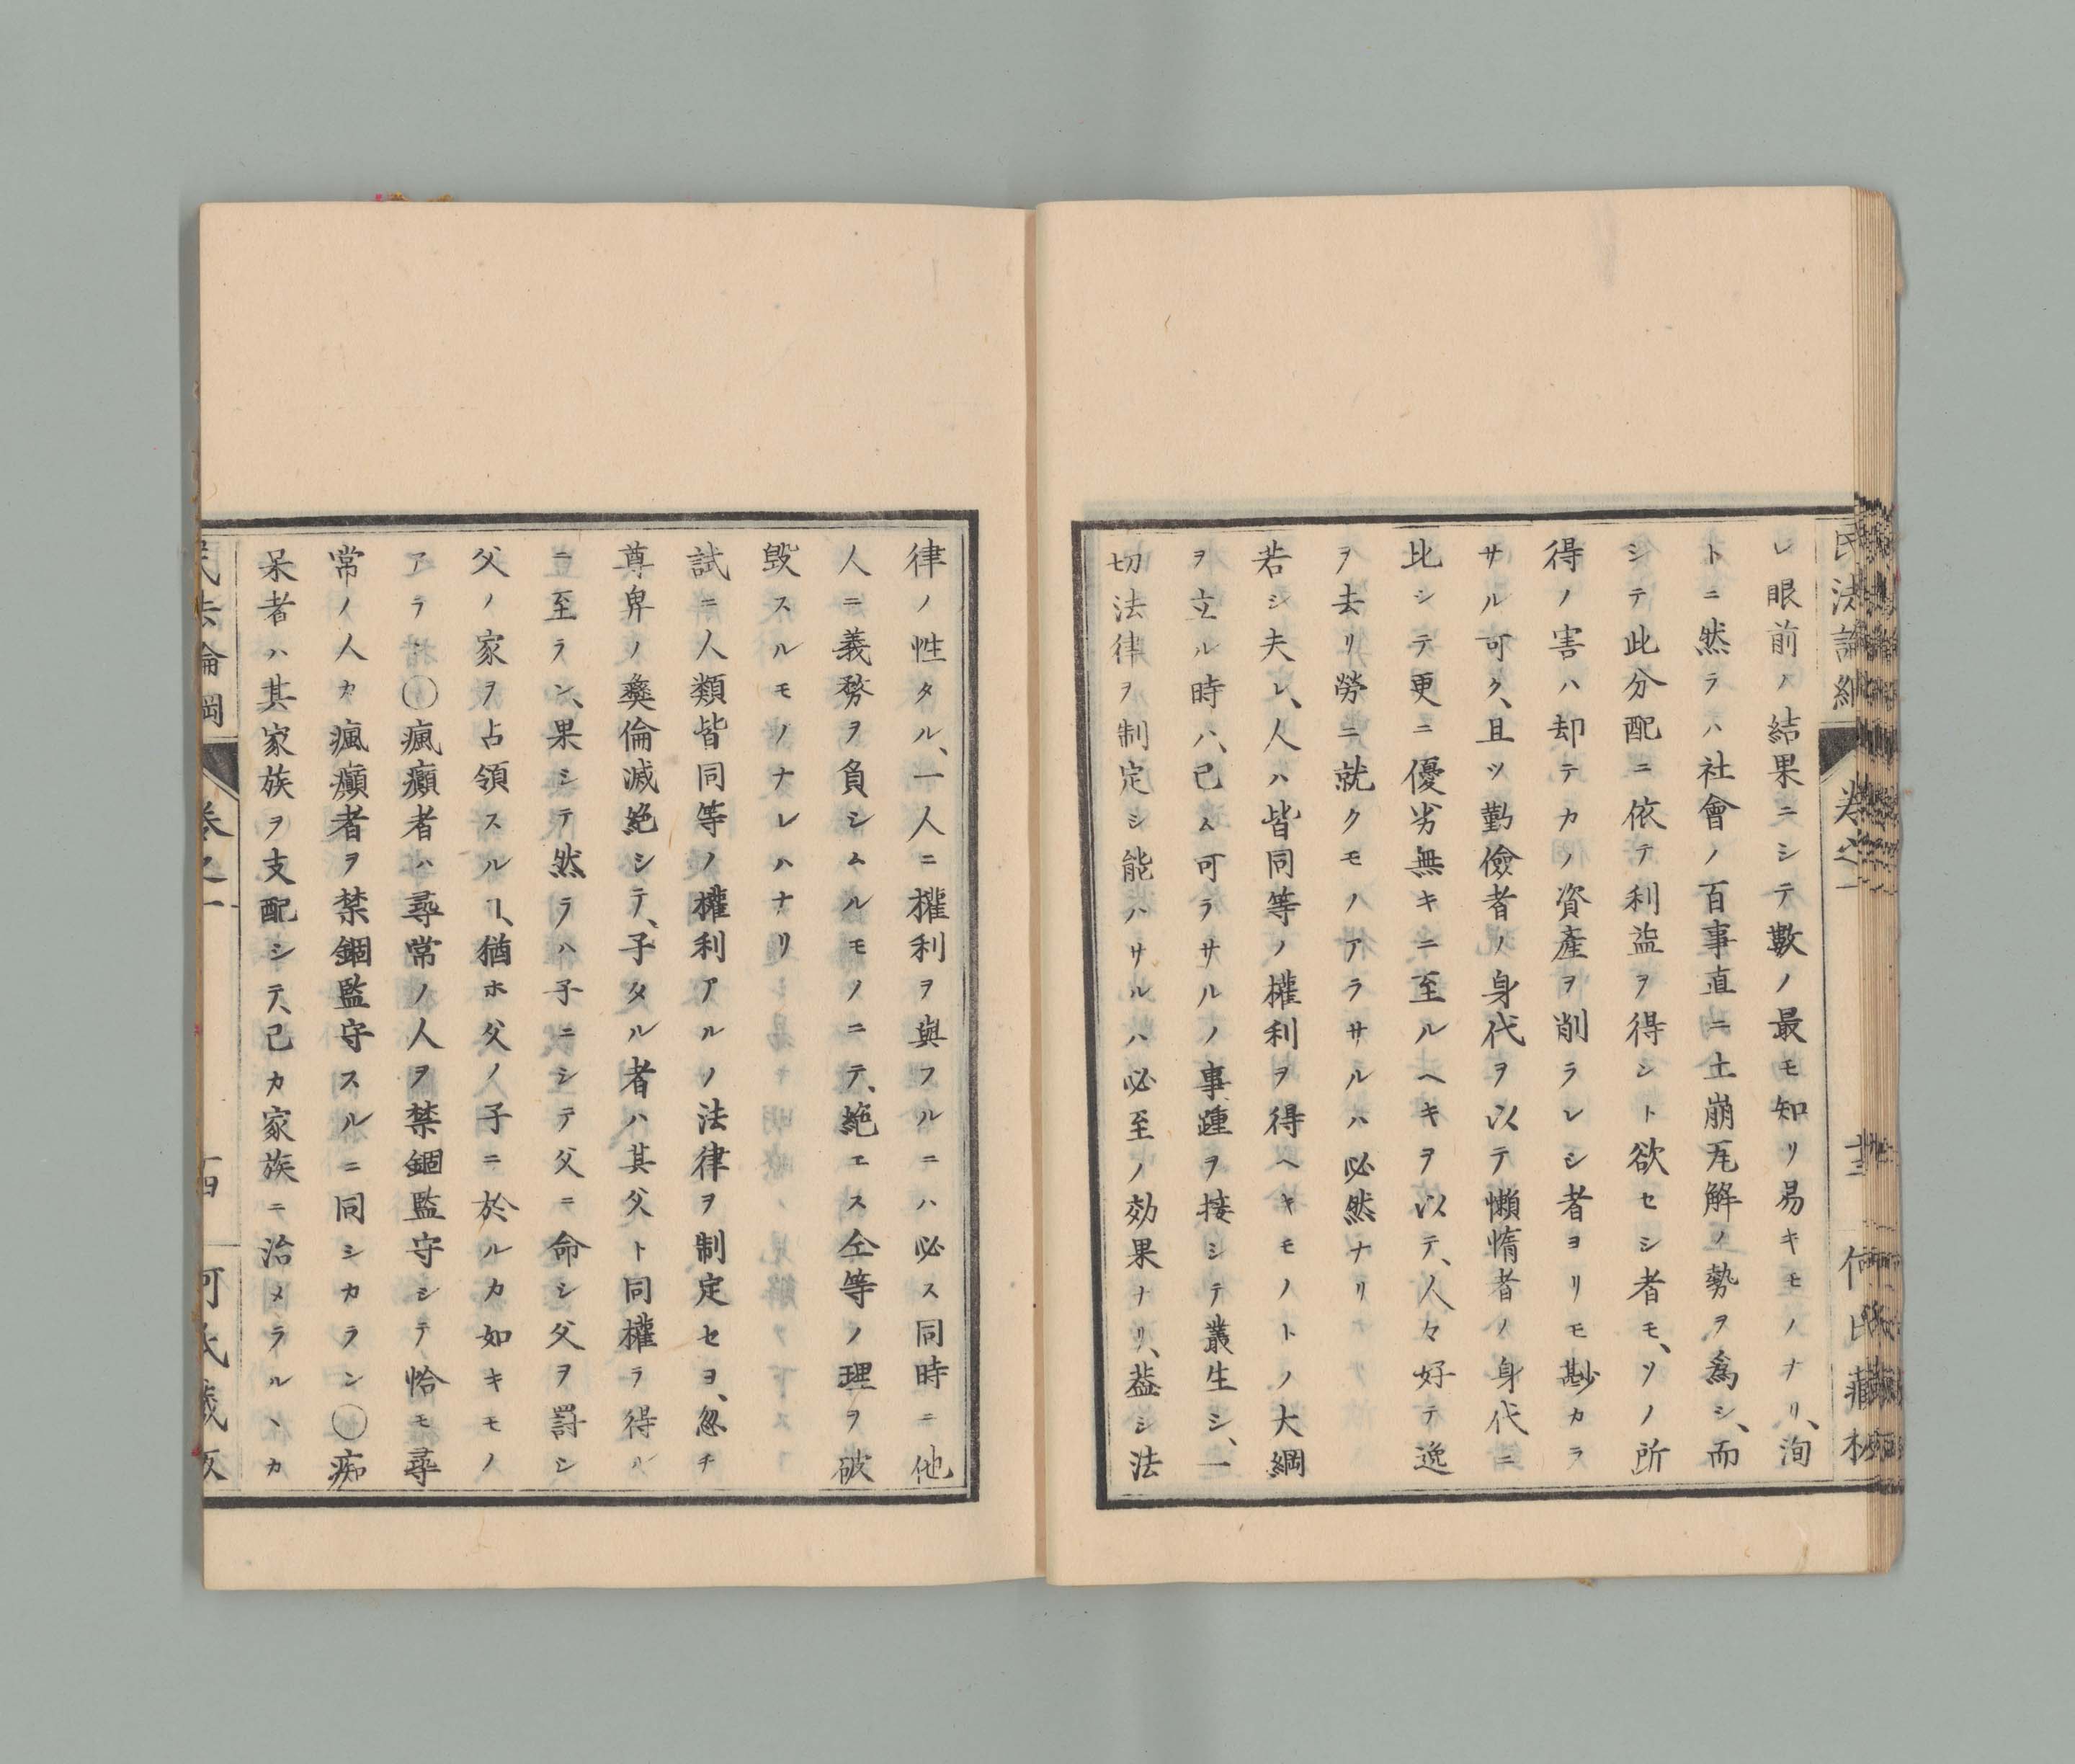 レ眼前ノ結果ニシテ數ノ最モ知リ易キモノナリ、洵
トニ然ラハ社會ノ百事直ニ土崩瓦解ノ勢ヲ為シ、而
シテ此分配ニ依テ利益ヲ得シト欲セシ者モ、ソノ所
得ノ害ハ却テカノ資產ヲ削ラレシ者ヨリモ尠カラ
サル可ク、且ツ勤儉者ノ身代ヲ以テ懶惰者ノ身代ニ
比シテ更ニ優劣無キニ至ルヘキヲ以テ、人々好テ逸
ヲ去リ勞ニ就クモノアラサルハ必然ナリ
若シ夫レ、人ハ皆同等ノ權利ヲ得ヘキモノトノ大綱
ヲ立ル時ハ、已ム可ラサルノ事踵ヲ接シテ叢生シ、一
切法律ヲ制定シ能ハサルハ必至ノ効果ナリ、葢シ法
律ノ性タル、一人ニ權利ヲ與フルニハ必ス同時ニ他
人ニ義務ヲ負シムルモノニテ、絶エス仝等ノ理ヲ破
毀スルモノナレハナリ
試ニ人類皆同等ノ權利アルノ法律ヲ制定セヨ、忽チ
尊卑ノ彝倫滅絶シテ、子タル者ハ其父ト同權ヲ得ル
ニ至ラン、果シテ然ラハ子ニシテ父ニ命シ父ヲ罰シ
父ノ家ヲ占領スルヿ、猶ホ父ノ子ニ於ルカ如キモノ
アラン〇瘋癲者ハ尋常ノ人ヲ禁錮監守シテ恰モ尋
常ノ人カ瘋癲者ヲ禁錮監守スルニ同シカラン〇痴
呆者ハ其家族ヲ支配シテ、己カ家族ニ治メラルヽカ
民法論綱
卷之一
十四
何氏藏版